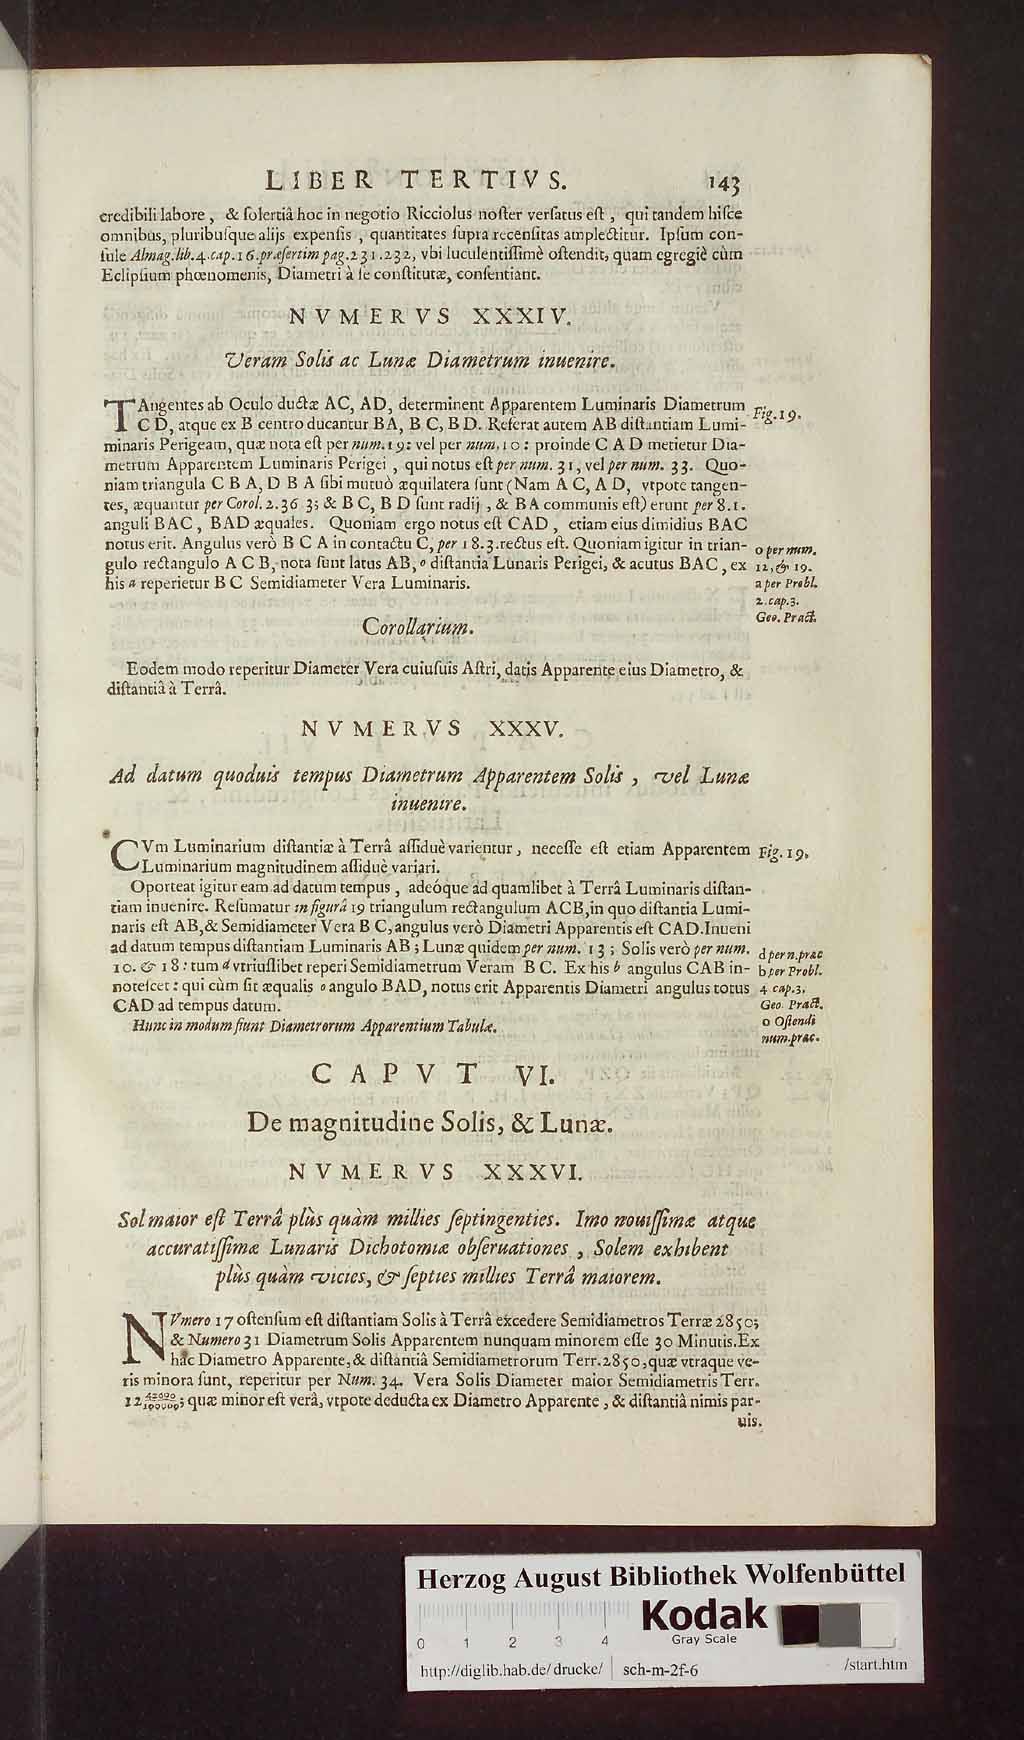 LIBER TERTIVS. 143
credibili labore, & ſolertiâ hoc in negotio Ricciolus noſter verſatus eſt, qui tandem hiſce
omnibus, pluribuſque alijs expenſis, quantitates ſupra recenſitas amplectitur. Ipſum con-
ſule Almag. lib. 4. cap. 16. præſertim pag. 231. 232, vbi luculentiſſimè oſtendit, quam egregiè cùm
Eclipſium phœnomenis, Diametri à ſe conſtitutæ, conſentiant.
NVMERVS XXXIV.
Veram Solis ac Lunæ Diametrum inuenire.
TAngentes ab Oculo ductæ AC, AD, determinent Apparentem Luminaris Diametrum Fig. 19.
CD, atque ex B centro ducantur BA, BC, BD. Referat autem AB diſtantiam Lumi-
minaris Perigeam, quæ nota eſt per num. 19: vel per num. 10: proinde CAD metietur Dia-
metrum Apparentem Luminaris Perigei, qui notus eſt per num. 31, vel per num. 33. Quo-
niam triangula CBA, DBA ſibi mutuò æquilatera ſunt (Nam AC, AD, vtpote tangen-
tes, æquantur per Corol. 2. 36 3; & BC, BD ſunt radij, & BA communis eſt) erunt per 8.1.
anguli BAC, BAD æquales. Quoniam ergo notus eſt CAD, etiam eius dimidius BAC
notus erit. Angulus verò BCA in contactu C, per 18.3. rectus eſt. Quoniam igitur in trian- o per num.
gulo rectangulo ACB, nota ſunt latus AB, o diſtantia Lunaris Perigei, & acutus BAC, ex 12, & 19.
his a reperietur BC Semidiameter Vera Luminaris. a per Probl.
2. cap. 3.
Geo. Pract.
Corollarium.
Eodem modo reperitur Diameter Vera cuiuſuis Aſtri, datis Apparente eius Diametro, &
diſtantiâ à Terrâ.
NVMERVS XXXV.
Ad datum quoduis tempus Diametrum Apparentem Solis, vel Lunæ
inuenire.
CVm Luminarium diſtantiæ à Terrâ aſſiduè varientur, neceſſe eſt etiam Apparentem Fig. 19.
Luminarium magnitudinem aſſiduè variari.
Oporteat igitur eam ad datum tempus, adeóque ad quamlibet à Terrâ Luminaris diſtan-
tiam inuenire. Reſumatur in figurâ 19 triangulum rectangulum ACB, in quo diſtantia Lumi-
naris eſt AB, & Semidiameter Vera BC, angulus verò Diametri Apparentis eſt CAD. Inueni
ad datum tempus diſtantiam Luminaris AB; Lunæ quidem per num. 13; Solis verò per num. d per n. præc
10. & 18: tum d vtriuſlibet reperi Semidiametrum Veram BC. Ex his b angulus CAB in- b per Probl.
noteſcet: qui cùm ſit æqualis o angulo BAD, notus erit Apparentis Diametri angulus totus 4 cap. 3.
CAD ad tempus datum. Geo. Pract.
Hunc in modum fiunt Diametrorum Apparentium Tabulæ. o Oſtendi
num. præc.
CAPVT VI.
De magnitudine Solis, & Lunæ.
NVMERVS XXXVI.
Sol maior eſt Terrâ plùs quàm millies ſeptingenties. Imo nouiſſimæ atque
accuratiſſimæ Lunaris Dichotomiæ obſeruationes, Solem exhibent
plùs quàm vicies, & ſepties millies Terrâ maiorem.
NVmero 17 oſtenſum eſt diſtantiam Solis à Terrâ excedere Semidiametros Terræ 2850;
& Numero 31 Diametrum Solis Apparentem nunquam minorem eſſe 30 Minutis. Ex
hâc Diametro Apparente, & diſtantiâ Semidiametrorum Terr. 2850, quæ vtraque ve-
ris minora ſunt, reperitur per Num. 34. Vera Solis Diameter maior Semidiametris Terr.
12; quæ minor eſt verâ, vtpote deducta ex Diametro Apparente, & diſtantiâ nimis par-
uis.
Herzog August Bibliothek Wolfenbüttel
Kodak
Gray Scale
0 1 2 3 4
http://diglib.hab.de/drucke/ sch-m-2f-6 /start.htm